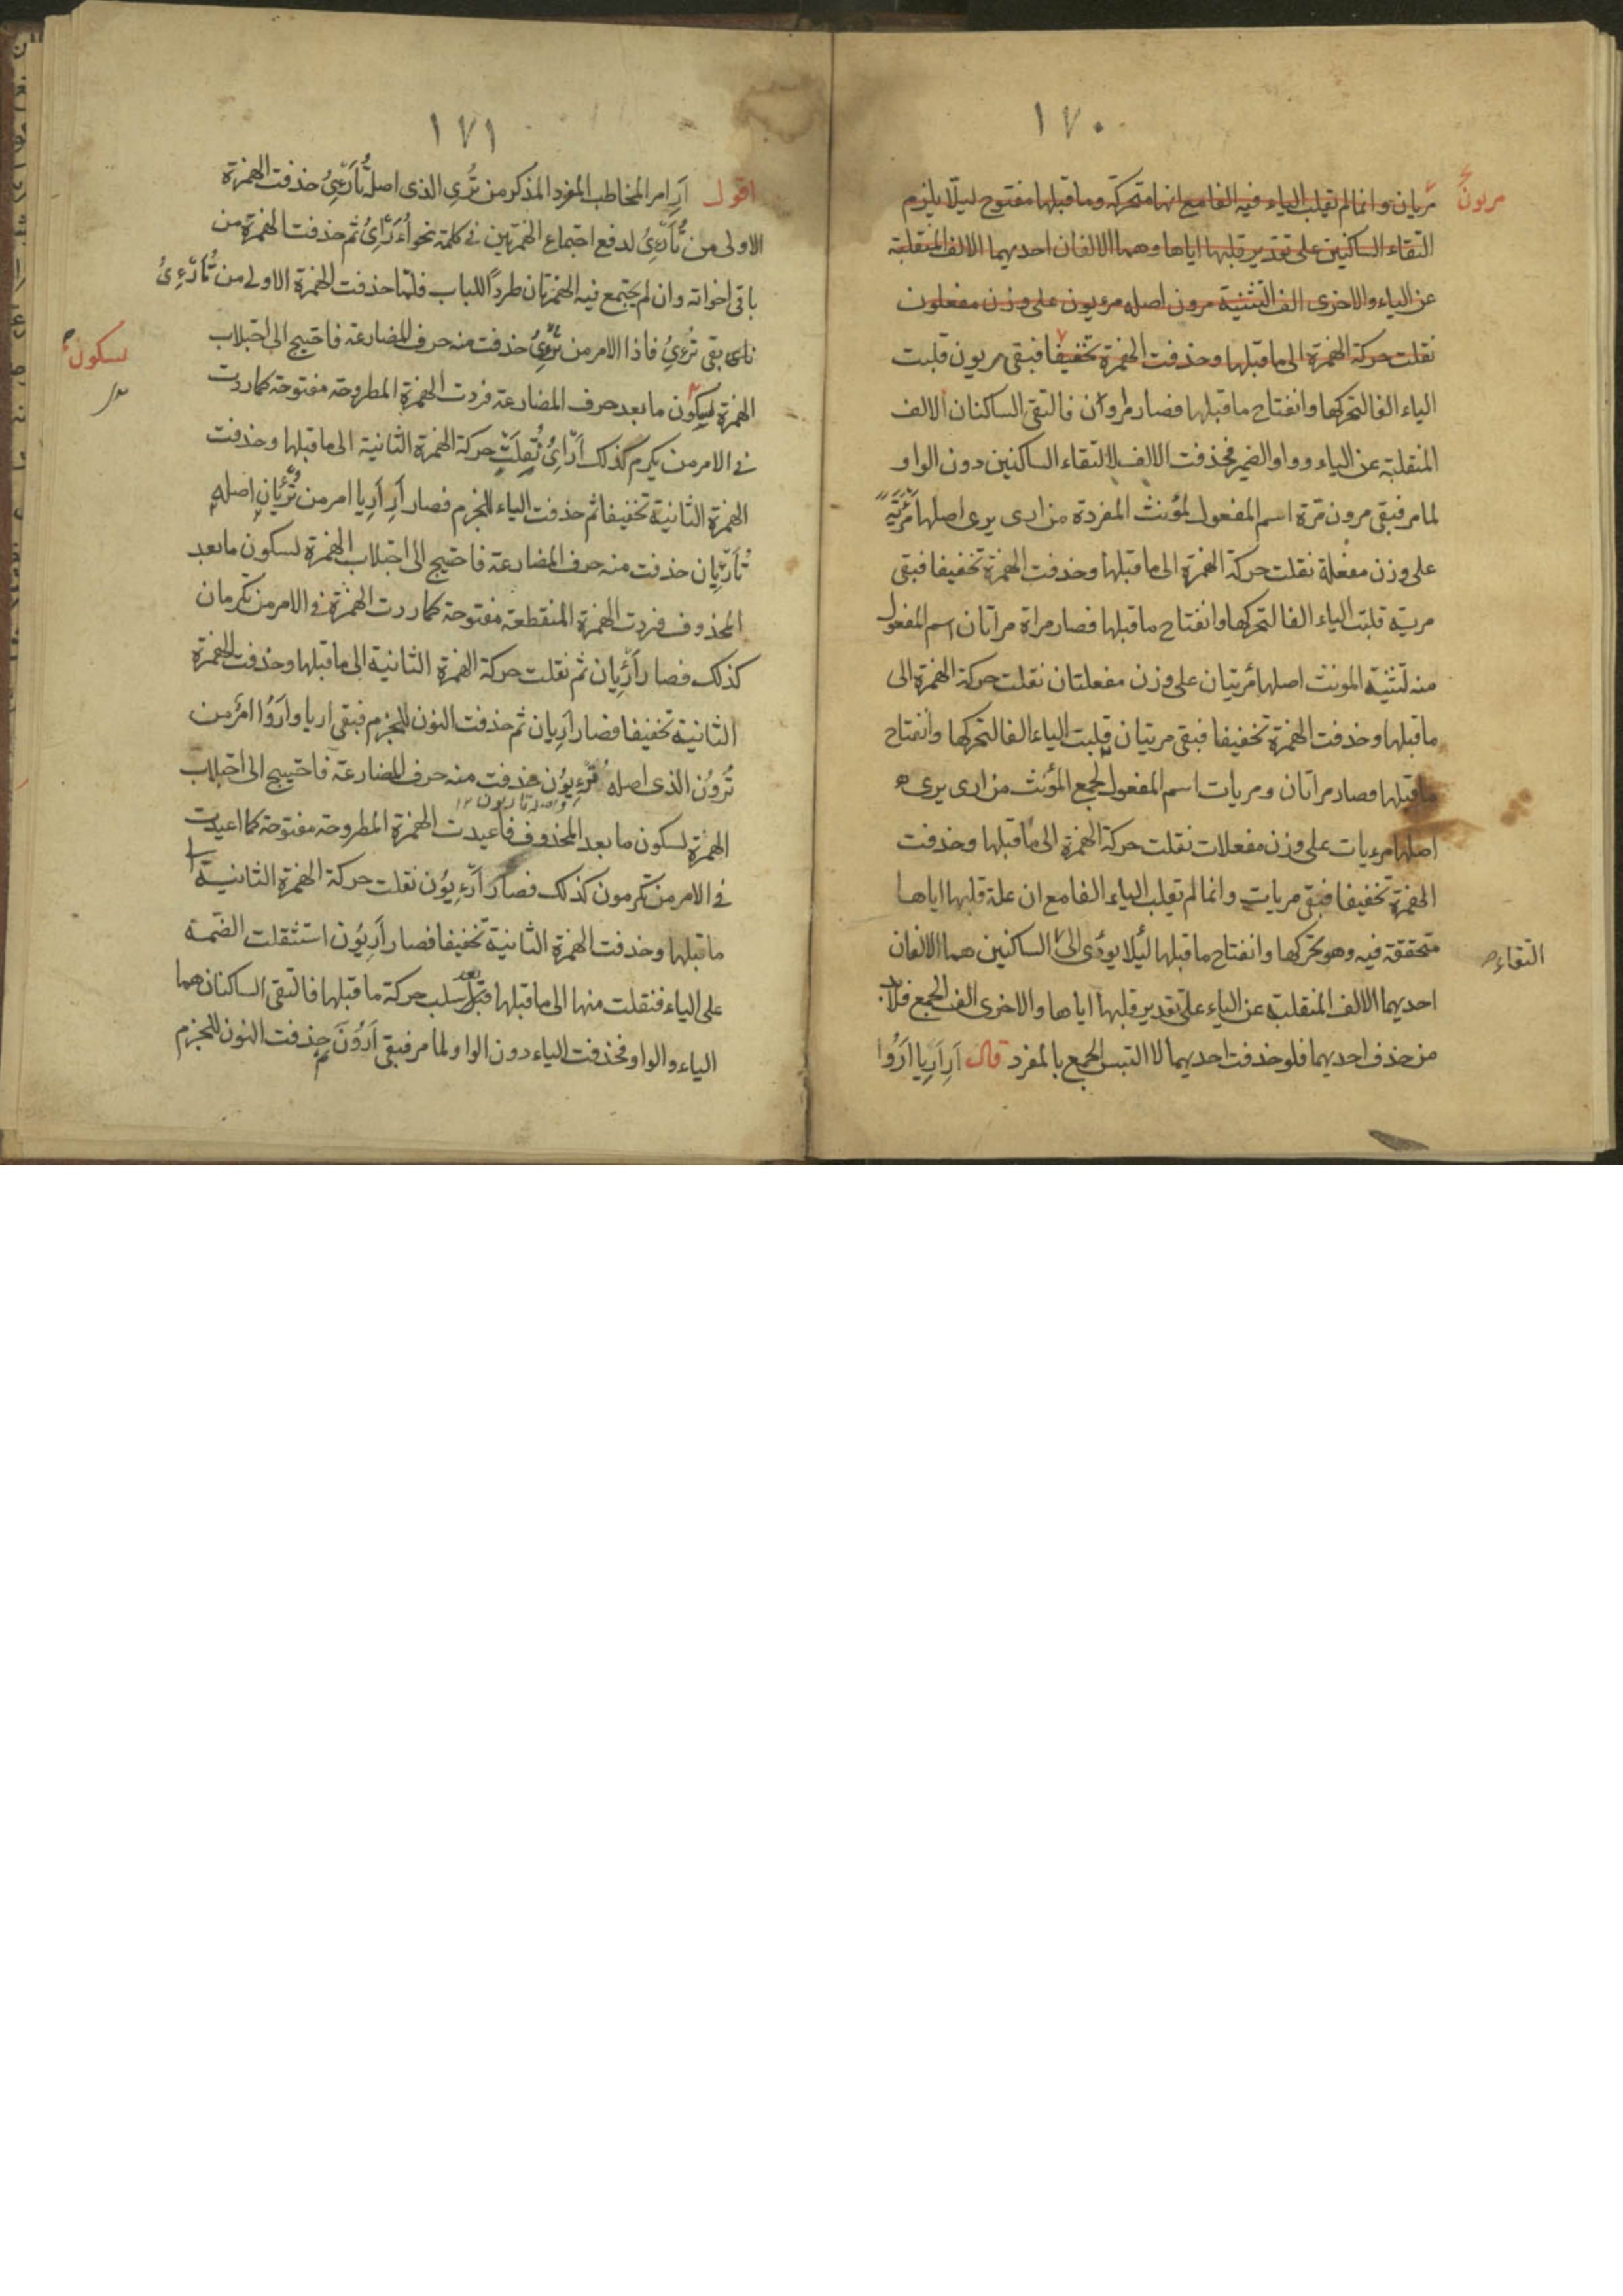 ١٧٠
مريون
مريان وانما لم تقلب الياء فيه الفا مع انها متحركة وما قبلها مفتوح ليلا يلزم
التقاء الساكنين على تقدير قلبها اياها وهما الالفان احديهما الالف المنقلبة
عن الياء والاخرى الف التثنية مرون اصله مرءيون على وزن مفعلون
نقلت حركة الهمزة الى ما قبلها وحذفت الهمزة تخفيفا فبقى مريون قلبت
الياء الفا لتحركها وانفتاح ما قبلها فصار مراون فالتقى الساكنان الالف
المنقلبة عن الياء وواو الضمير فحذفت الالف لالتقاء الساكنين دون الواو
لما مر فبقى مرون مرة اسم المفعول لمؤنث المفردة من ارى يرى اصلها مَرْئَيَة
على وزن مفعلة نقلت حركة الهمزة الى ما قبلها وحذفت الهمزة تخفيفا فبقى
مرية قلبت الياء الفا لتحركها وانفتاح ما قبلها فصار مراة مراتان اسم المفعول
منه لتثنية المونث اصلها مرئيتان على وزن مفعلتان نقلت حركة الهمزة الى
ما قبلها وحذفت الهمزة تخفيفا فبقى مريتان قلبت الياء الفا لتحركها وانفتاح
ما قبلها فصار مراتان ومريات اسم المفعول لجمع المؤنث من ارى يرى
اصلها مرءيات على وزن مفعلات نقلت حركة الهمزة الى ما قبلها وحذفت
الهمزة تخفيفا فبقى مريات وانما لم تقلب الياء الفا مع ان علة قلبها اياها
متحققة فيه وهو تحركها وانفتاح ما قبلها لئلا يودى الى الساكنين هما الالفان
التقاء
احديهما الالف المنقلبة عن الياء على تقدير قلبها اياها والاخرى الف الجمع فلابد
من حذف احديهما فلو حذفت احديهما لا التبس الجمع بالمفرد قال اَرِ اَرِيا اَرُوا
١٧١
اقول اَرِ امر المخاطب المفرد المذكر من تُرِى الذى اصله تُأَرْءِىُ حذفت الهمزة
الاولى من تُأَرْءِىُ لدفع اجتماع الهمزتين فى كلمة نحو اُءَرْاِىُ ثم حذفت الهمزة من
باقى اخواته وان لم يجتمع فيه الهمزتان طرداً للباب فلما حذفت الهمزة الاولى من تُأَرْءِىُ
بقى تُرْءِىُ فاذا الامر من تُرْءِىُ حذفت منه حرف المضارعة فاحتيج الى اجتلاب
الهمزة لسكون ما بعد حرف المضارعة فردت الهمزة المطروحة مفتوحة كما ردت
لسكون
فى الامر من يكرم كذلك اَرْاِىُ نُقِلَتْ حركة الهمزة الثانية الى ما قبلها وحذفت
الهمزة الثانية تخفيفا ثم حذفت الياء للجزم فصار اَرِ اَرِيا امر من تُرْئِيانِ اصله
تُأَرْئِيان حذفت منه حرف المضارعة فاحتيج الى اجتلاب الهمزة لسكون ما بعد
المحذوف فردت الهمزة المنقطعة مفتوحة كما ردت الهمزة فى الامر من تكرمان
كذلك فصار اَرْئِيان ثم نقلت حركة الهمزة الثانية الى ما قبلها وحذفت الهمزة
الثانية تخفيفا فصار اَرِيان ثم حذفت النون للجزم فبقى اريا واَرُوا امر من
تُرُونَ الذى اصله تُرْءِيوُن حذفت منه حرف المضارعة فاحتيج الى اجتلاب
الهمزة لسكون ما بعد المحذوف فاعيدت الهمزة المطروحة مفتوحة كما اعيدت
فى الامر من تكرمون كذلك فصار اَرْءِيُون نقلت حركة الهمزة الثانية
ما قبلها وحذفت الهمزة الثانية تخفيفا فصار اَرِيُون استثقلت الضمة
على الياء فنقلت منها الى ما قبلها بعد سلب حركة ما قبلها فالتقى الساكنان هما
الياء والواو فحذفت الياء دون الواو لما مر فبقى اَرُوْنَ ثم حذفت النون للجزم